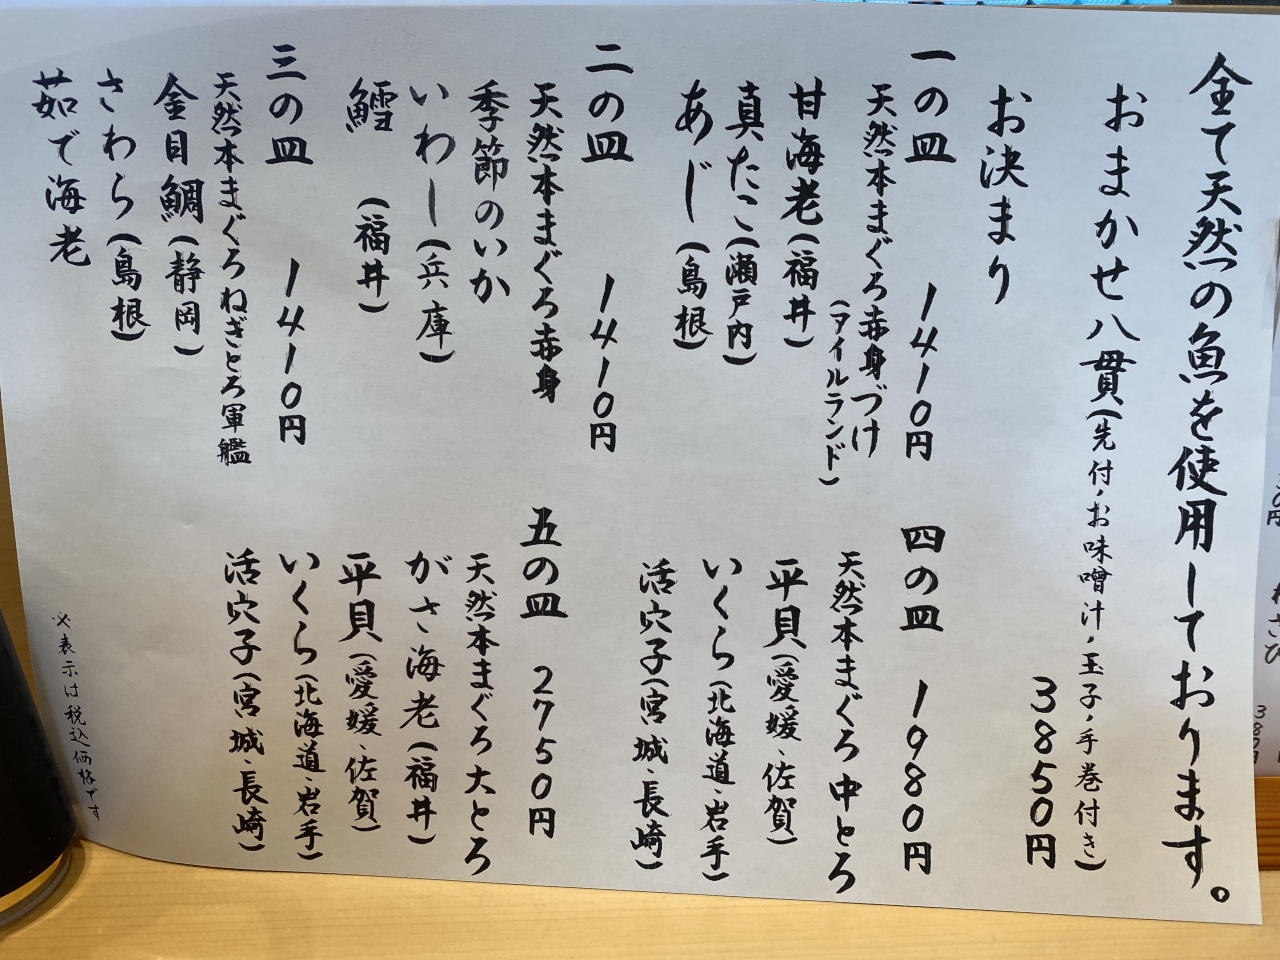 全て天然の魚を使用しております。
おまかせ八貫(先付、お味噌汁、玉子、手巻付き)
3850円
お決まり
一の皿 1410円
天然本まぐろ赤身づけ
(アイルランド)
甘海老(福井)
真たこ(瀬戸内)
あじ(島根)
二の皿 1410円
天然本まぐろ赤身
季節のいか
いわし(兵庫)
鱈(福井)
三の皿 1410円
天然本まぐろねぎとろ軍艦
金目鯛(静岡)
さわら(島根)
茹で海老
四の皿 1980円
天然本まぐろ中とろ
平貝(愛媛、佐賀)
いくら(北海道、岩手)
活穴子(宮城、長崎)
五の皿 2750円
天然本まぐろ大とろ
がさ海老(福井)
平貝(愛媛、佐賀)
いくら(北海道、岩手)
活穴子(宮城、長崎)
※表示は税込価格です